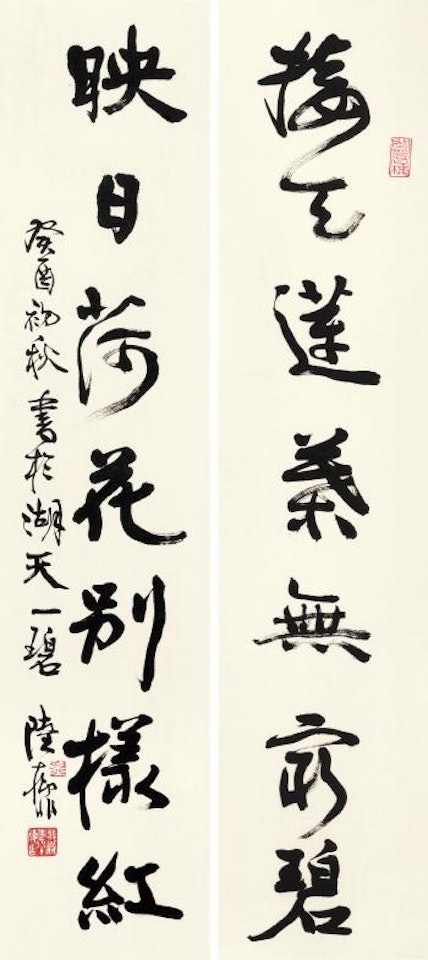 接天蓮葉無窮碧
映日荷花別樣紅
癸酉初秋書於湖天一碧 陸抑非